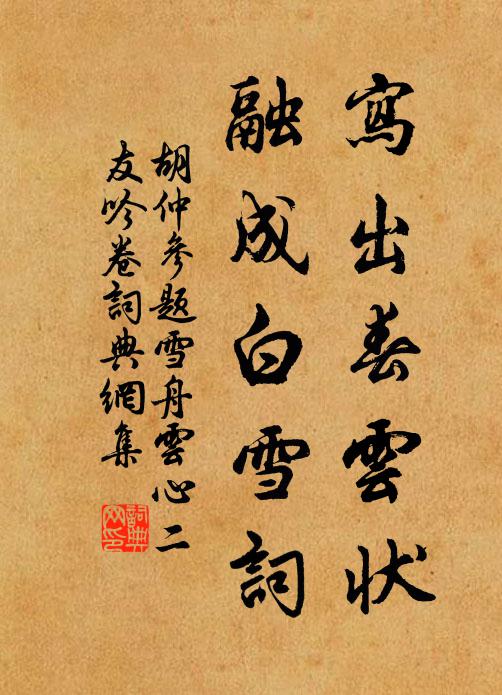 寫出春雲狀
融成白雪詞
胡仲參題雪舟雲心二
友吟卷詞典網集
詞典
网印